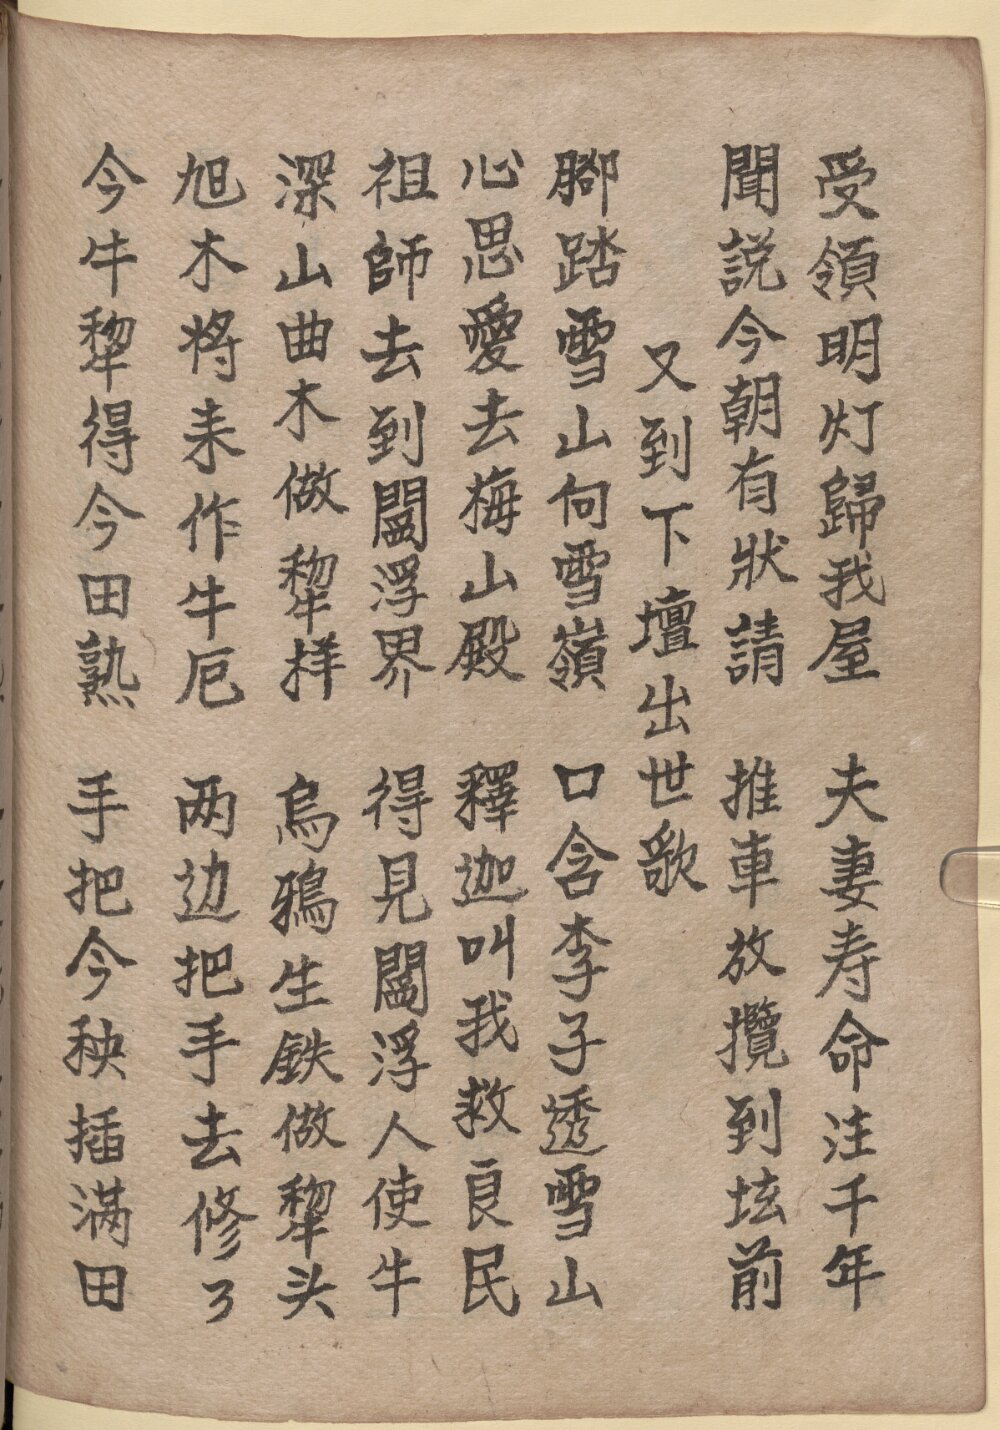 受領明灯歸我屋　夫妻寿命注千年
聞説今朝有狀請　推車放攬到坛前
又到下壇出世歌
腳踏雪山向雪嶺　口含李子透雪山
心思愛去梅山殿　釋迦叫我救良民
祖師去到閻浮界　得見閻浮人使牛
深山曲木做犂样　烏鴉生鉄做犂头
旭木将来作牛厄　两边把手去修了
今牛犂得今田熟　手把今秧插滿田